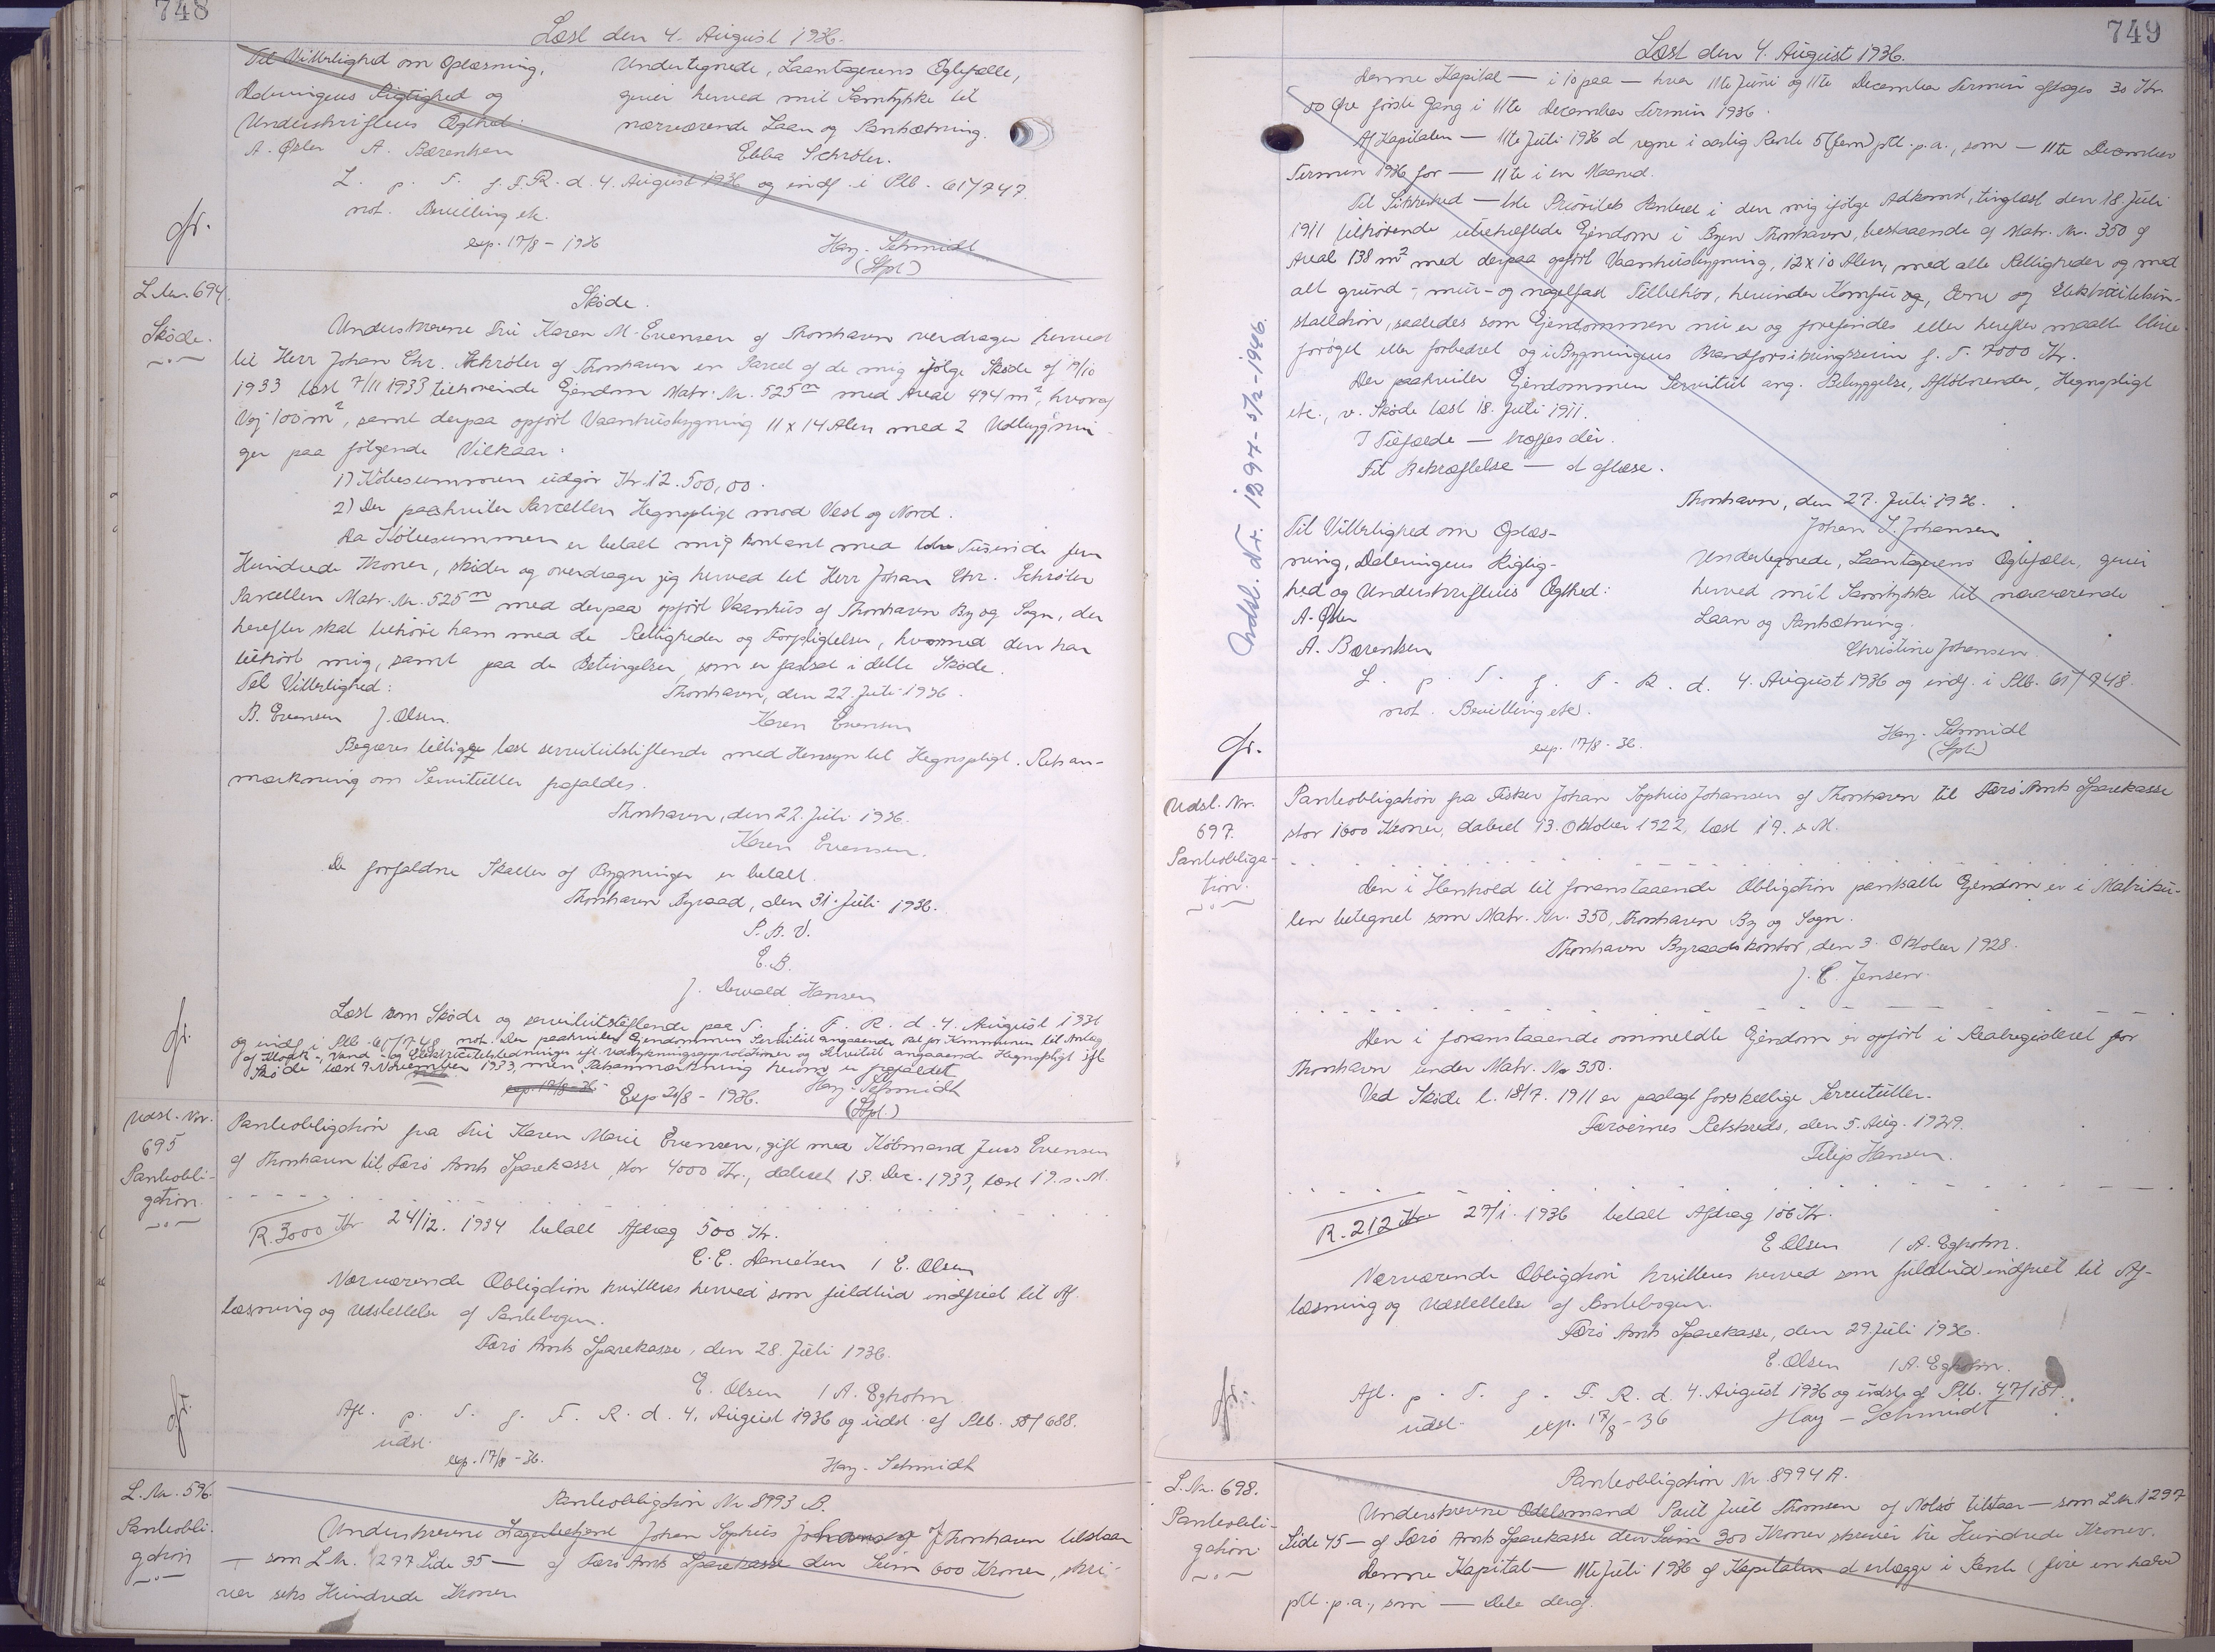 748
Læst den 4. August 1936.
Til Vitterlighed om Oplæsning,
Dateringens Rigtighed og
Underskriftens Ægthed:
A. Øster A. Bærentsen
Undertegnede, Laantagerens Ægtefælle,
giver herved mit Samtykke til
nærværende Laan og Pantsætning.
Ebba Schröter.
L. p. T. f. F. R. d. 4. August 1936 og indf. i Ptb. 61/747.
not. Bevilling etc.
exp. 17/8 - 1936
Hay-Schmidt
(Spl)
L. Nr. 694.
Skøde.
Skøde.
Underskrevne Fru Karen M. Evensen af Thorshavn overdrager herved
til Herr Johan Chr. Schröter af Thorshavn en Parcel af de mig ifølge Skøde af 19/10
1933 læst 7/11 1933 tilhørende Ejendom Matr. Nr. 525 m med Areal 494 m², hvoraf
Vej 100 m², samt derpaa opført Vaaningsbygning 11 x 14 Alen med 2 Udbygnin-
ger paa følgende Vilkaar:
1) Købesummen udgør Kr. 12.500,00.
2) Der paahviler Parcellen Hegnspligt mod Vest og Nord.
Da Købesummen er betalt mig kontant med tolv Tusinde fem
Hundrede Kroner, skøder og overdrager jeg herved til Herr Johan Chr. Schröter
Parcellen Matr. Nr. 525 m med derpaa opført Vaanhus af Thorshavn By og Sogn, der
herefter skal tilhøre ham med de Rettigheder og Forpligtelser, hvormed den har
tilhørt mig, samt paa de Betingelser, som er fastsat i dette Skøde.
Til Vitterlighed:
Thorshavn, den 22. Juli 1936.
B. Evensen J. Olsen.
Karen Evensen
Begæres tilligge læst servitutstiftende med Hensyn til Hegnspligt. Retsan-
mærkning om Servitutter frafaldes.
Thorshavn, den 22. Juli 1936.
Karen Evensen.
De forfaldne Skatter af Bygninger er betalt.
Thorshavn Byraad, den 31. Juli 1936.
P. B. V.
E. B.
J. Dewald Hansen
Læst som Skøde og servitutstiftende paa T. f. F. R. d. 4. August 1936
og indf. i Ptb. 61/748 not. Der paahviler Ejendommen Servitut angaaende Ret for Kommunen til Anlæg
af Kloak-, Vand- og Elektricitetsledninger ifl. Udstykningsapprobationer og Servitut angaaende Hegnspligt ifl.
Skøde læst 7 November 1933, men Retsanmærkning herom er frafaldet
exp. 17/8-36 Exp 21/8 - 1936.
Hay-Schmidt
(Spl.)
Udsl. Nr.
695
Pantobli-
gation.
Pantobligation fra Fru Karen Marie Evensen, gift med Købmand Jens Evensen
af Thorshavn til Færø Amts Sparekasse, stor 4000 Kr., dateret 13. Dec. 1933, læst 19. s. M.
R. 3000 Kr 24/12. 1934 betalt Afdrag 500 Kr.
E. E. Danielsen / E. Olsen
Nærværende Obligation kvitteres herved som fuldtud indfriet til Af-
læsning og Udslettelse af Pantebogen.
Færø Amts Sparekasse, den 28. Juli 1936.
E. Olsen / A. Egholm
Afl. p. T. f. F. R. d. 4. August 1936 og udsl. af Ptb. 58/688.
udsl.
exp. 17/8 - 36.
Hay-Schmidt
L. Nr. 596.
Pantobli-
gation
Pantobligation Nr. 8993 B.
Underskrevne Lagerbetjent Johan Sophus Johansen af Thorshavn tilstaar
— som L. Nr. 1297 Side 35 — af Færø Amts Sparekasse den Sum 600 Kroner, skri-
ver seks Hundrede Kroner
749
Læst den 4. August 1936.
Denne Kapital — i 10 paa — hver 11te Juni og 11te December Termin aftages 30 Kr.
00 Øre første Gang i 11te December Termin 1936.
Af Kapitalen — 11te Juli 1936 at regne i aarlig Rente 5 (fem) pCt. p.a., som — 11te December
Termin 1936 for — 11te i en Maaned.
Til Sikkerhed — 1ste Prioritets Panteret i den mig ifølge Adkomst, tinglæst den 18 Juli
1911 tilhørende ubehæftede Ejendom i Byen Thorshavn, bestaaende af Matr. Nr. 350 af
Areal 138 m² med derpaa opført Vaaningsbygning, 12 x 10 Alen, med alle Rettigheder og med
alt grund-, mur- og nagelfast Tilbehør, herunder Komfur og, Ovne og Elektricitetsin-
stallation, saaledes som Ejendommen nu er og forefindes eller herefter maatte blive
forøget eller forbedret og i Bygningens Brandforsikringssum f. T. 7000 Kr.
Der paahviler Ejendommen Servitut ang. Bebyggelse, Afløbsrender, Hegnspligt
etc., v. Skøde læst 18. Juli 1911.
I Tilfælde — træffes dér.
Til Bekræftelse — at aflæse.
Thorshavn, den 27. Juli 1936.
Johan S. Johansen
Til Vitterlighed om Oplæs-
ning, Dateringens Rigtig-
hed og Underskriftens Ægthed:
A. Øster
A. Bærentsen
Undertegnede, Laantagerens Ægtefælle, giver
herved mit Samtykke til nærværende
Laan og Pantsætning.
Christine Johansen
L. p. T. f. F. R. d. 4. August 1936 og indf. i Ptb. 61/748.
not. Bevilling etc.
exp. 17/8 - 36.
Hay-Schmidt
(Spl)
Udsl. Nr. 1297 - 5/2-1946.
Udsl. Nr.
697.
Pantobliga-
tion.
Pantobligation fra Fisker Johan Sophus Johansen af Thorshavn til Færø Amts Sparekasse
stor 1600 Kroner, dateret 13. Oktober 1922, læst 19. s. M.
Den i Henhold til foranstaaende Obligation pantsatte Ejendom er i Matriku-
len betegnet som Matr. Nr. 350, Thorshavn By og Sogn.
Thorshavn Byraadskontor, den 3. Oktober 1928.
J. C. Jensen.
Den i foranstaaende ommeldte Ejendom er opført i Realregisteret for
Thorshavn under Matr. Nr 350.
Ved Skøde l. 18/7. 1911 er paalagt forskellige Servitutter.
Færøernes Retskreds, den 5. Aug. 1929.
Filip Hansen.
R. 212 Kr. 27/1. 1936 betalt Afdrag 106 Kr.
E Olsen / A. Egholm.
Nærværende Obligation kvitteres herved som fuldtud indfriet til Af-
læsning og Udslettelse af Pantebogen.
Færø Amts Sparekasse, den 29. Juli 1936.
E. Olsen / A. Egholm.
Afl. p. T. f. F. R. d. 4. August 1936 og udsl. af Ptb. 47/181.
udsl. exp. 17/8 - 36 Hay-Schmidt
L. Nr. 698.
Pantobli-
gation
Pantobligation Nr. 8994 A.
Underskrevne Odelsmand Poul Juel Thomsen af Nolsö tilstaar — som L. Nr. 1297
Side 45 — af Færø Amts Sparekasse den Sum 300 Kroner skriver tre Hundrede Kroner.
Denne Kapital — 11te Juli 1936 af Kapitalen at erlægge i Rente (fire en halv)
pCt. p.a., som — Dele deraf.